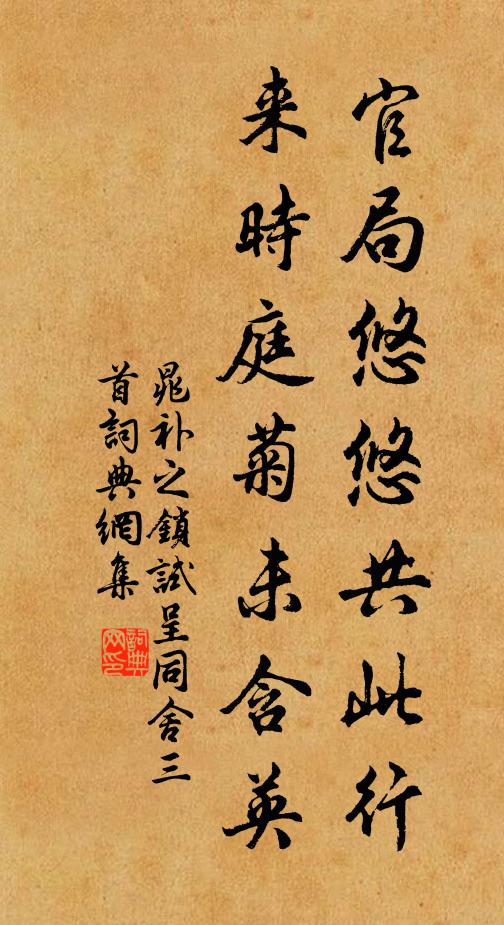 官局悠悠共此行
来時庭菊未含英
晁补之鎖試呈同舍三
首詞典網集
詞典
网印